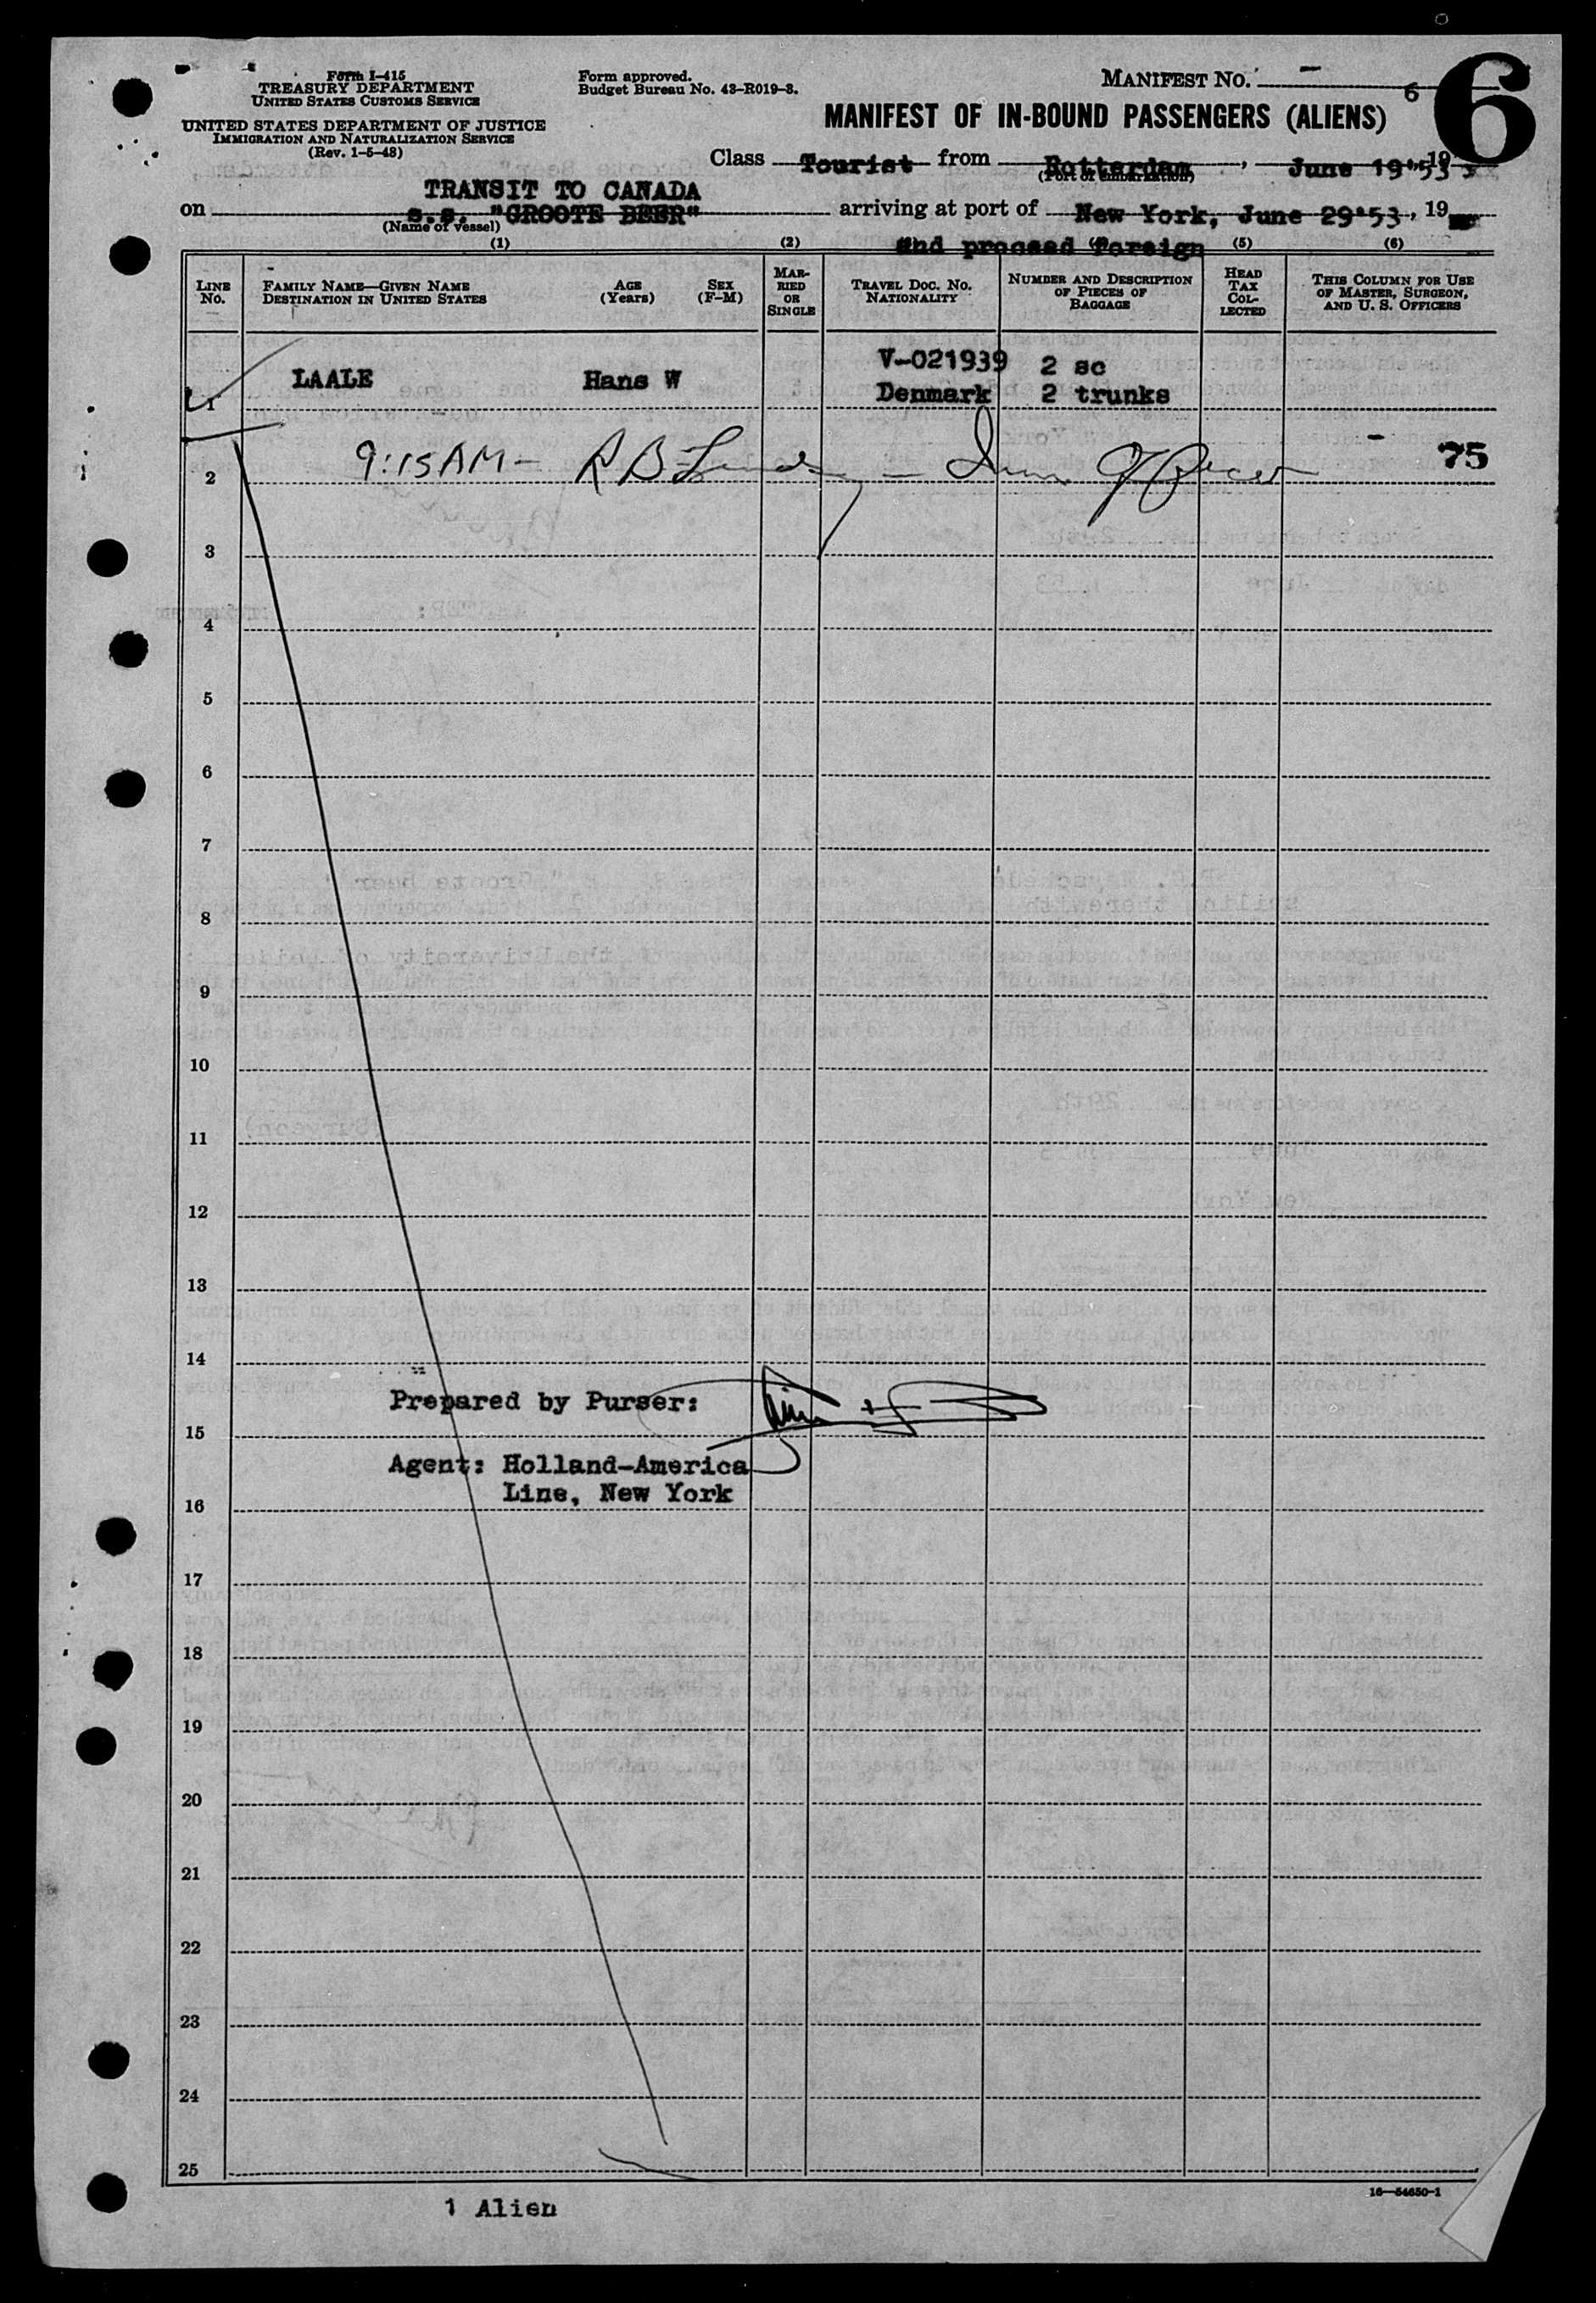 Form I-415
TREASURY DEPARTMENT
UNITED STATES CUSTOMS SERVICE
UNITED STATES DEPARTMENT OF JUSTICE
IMMIGRATION AND NATURALIZATION SERVICE
(Rev. 1-5-48)
Form approved.
Budget Bureau No. 43-R019-3.
MANIFEST NO. 6
6
MANIFEST OF IN-BOUND PASSENGERS (ALIENS)
Class Tourist from Rotterdam, June 19'53, 19
(Port of embarkation)
TRANSIT TO CANADA
on s.s. "GROOTE BEER" arriving at port of New York, June 29'53, 19
(Name of vessel)
and proceed foreign
(1) (2) (5) (6)
LINE No. FAMILY NAME—GIVEN NAME DESTINATION IN UNITED STATES AGE (Years) SEX (F-M) MARRIED OR SINGLE TRAVEL DOC. NO. NATIONALITY NUMBER AND DESCRIPTION OF PIECES OF BAGGAGE HEAD TAX COLLECTED THIS COLUMN FOR USE OF MASTER, SURGEON, AND U. S. OFFICERS
V-021939 2 sc
1 LAALE Hans W Denmark 2 trunks
2 9:15 AM - R B 75
3
4
5
6
7
8
9
10
11
12
13
14
Prepared by Purser:
15
Agent: Holland-America
Line, New York
16
17
18
19
20
21
22
23
24
25
16—54650-1
1 Alien